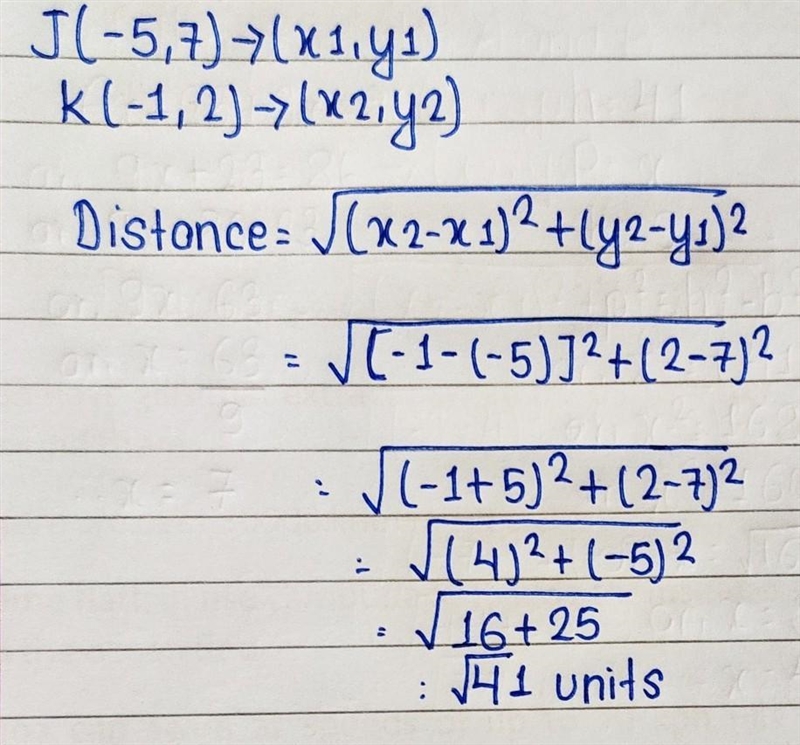 J(-5,7)→(x1,y1)
K(-1,2)→(x2,y2)
Distonce=√(x2-x1)²+(y2-y1)²
=√[-1-(-5)]²+(2-7)²
=√(-1+5)²+(2-7)²
=√(4)²+(-5)²
=√16+25
:√41 units